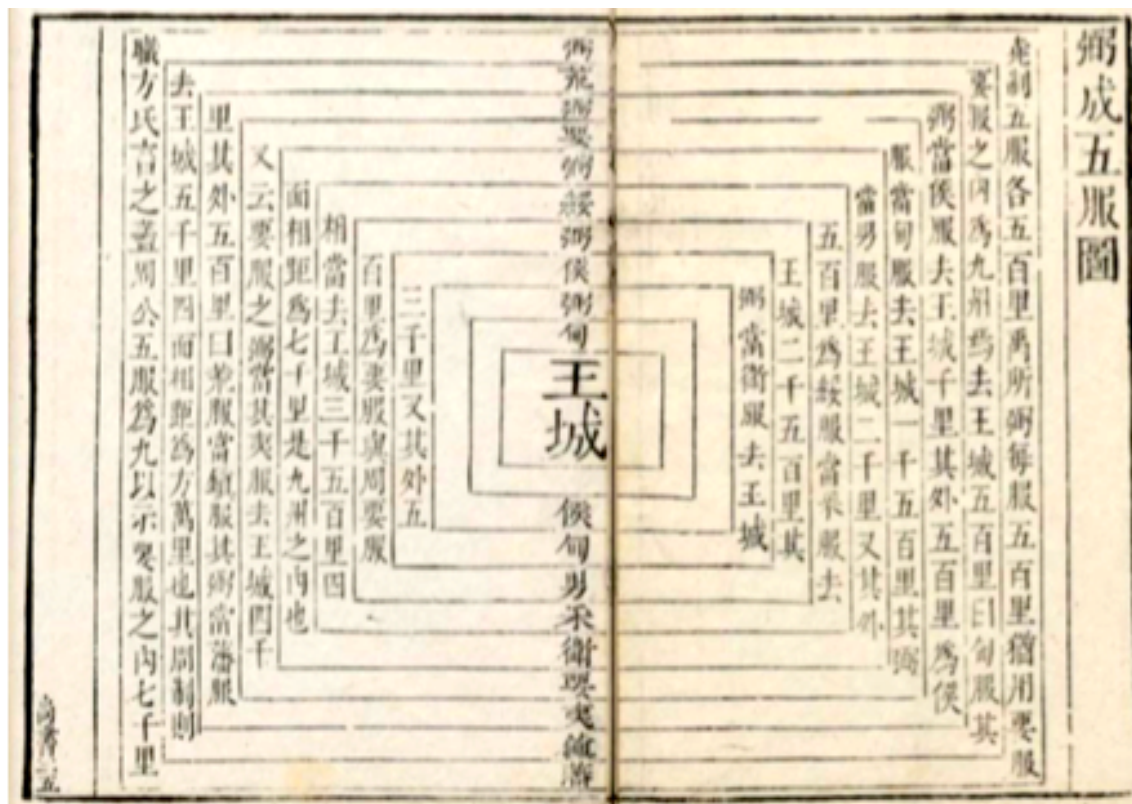 弼成五服圖
堯制五服各五百里禹所弼每服五百里猶用要服
要服之內爲九州些去王城五百里曰甸服其
弼當侯服去王城千里其外五百里爲侯
服當甸服去王城一千五百里其弼
當男服去王城二千里又其外
五百里爲綏服當采服去
王城二千五百里其
弼當衛服去王城
弼荒弼要弼綏弼侯弼甸
王城
侯甸男采衛要夷鎮藩
三千里又其外五
百里爲要服與周要服
相當去王城三千五百里四
面相距爲七千里是九州之內也
又云要服之弼當其夷服去王城四千
里其外五百里曰荒服當鎮服其弼當藩服
去王城五千里四面相距爲方萬里也其周制則
職方氏言之蓋周公五服爲九以示要服之內七千里